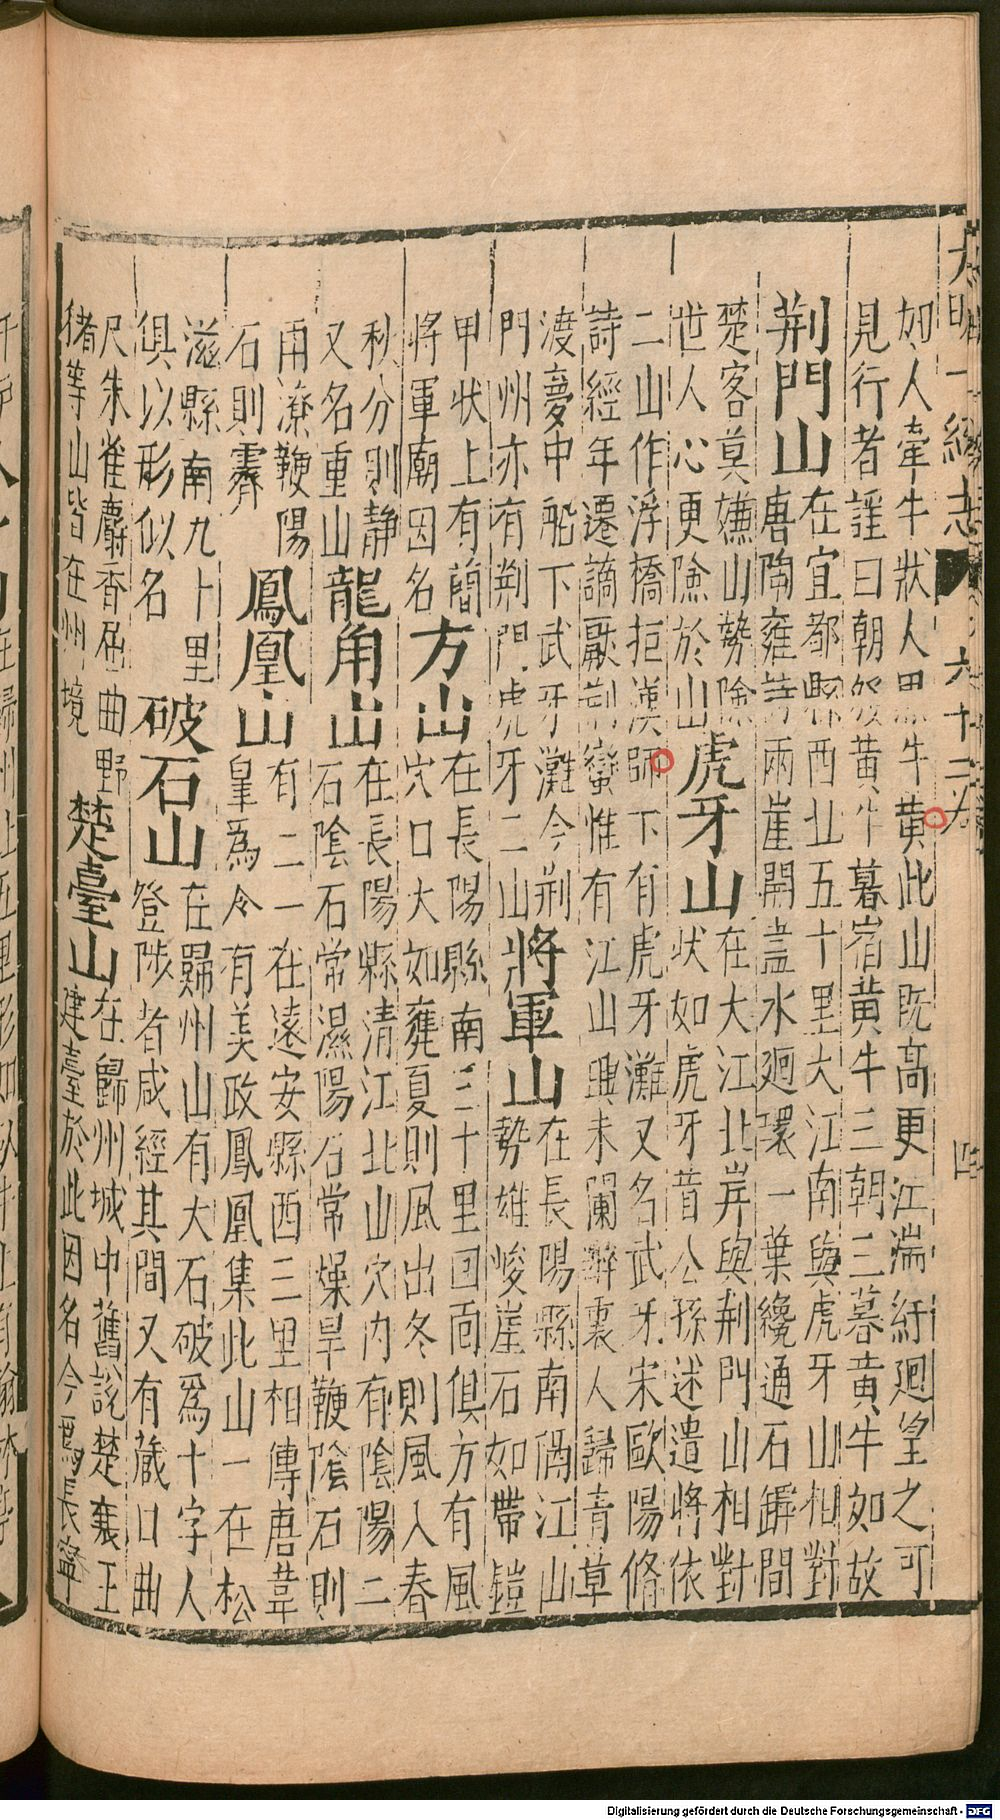 大明一統志 卷六十二 四
如人牽牛狀人黑牛黃此山既高更江湍紆迴望之可
見行者謠曰朝發黃牛暮宿黃牛三朝三暮黃牛如故
荊門山
在宜都縣西北五十里大江南與虎牙山相對
唐陶雍詩兩崖開盡水迴環一葉纔通石罅間
楚客莫嫌山勢險
世人心更險於山
虎牙山
在大江北岸與荊門山相對
狀如虎牙昔公孫述遣將依
二山作浮橋拒漢師下有虎牙灘又名武牙宋歐陽脩
詩經年遷謫厭荊蠻惟有江山興未闌醉裏人歸青草
渡夢中船下武牙灘今荊
門州亦有荊門虎牙二山
將軍山
在長陽縣南偶江山
勢雄峻崖石如帶鎧
甲狀上有蘭
將軍廟因名
方山
在長陽縣南三十里回面俱方有風
穴口大如甕夏則風出冬則風入春
秋分則静
又名重山
龍角山
在長陽縣清江北山穴內有陰陽二
石陰石常濕陽石常燥旱鞭陰石則
雨潦鞭陽
石則霽
鳳凰山
有二一在遠安縣西三里相傳唐韋
皐爲令有美政鳳凰集此山一在松
滋縣南九十里
俱以形似名
破石山
在歸州山有大石破爲十字人
登陟者咸經其間又有藏口曲
尺朱雀麝香屈曲野
猪等山皆在州境
楚臺山
在歸州城中舊說楚襄王
建臺於此因名今爲長寧
Digitalisierung gefördert durch die Deutsche Forschungsgemeinschaft - DFG